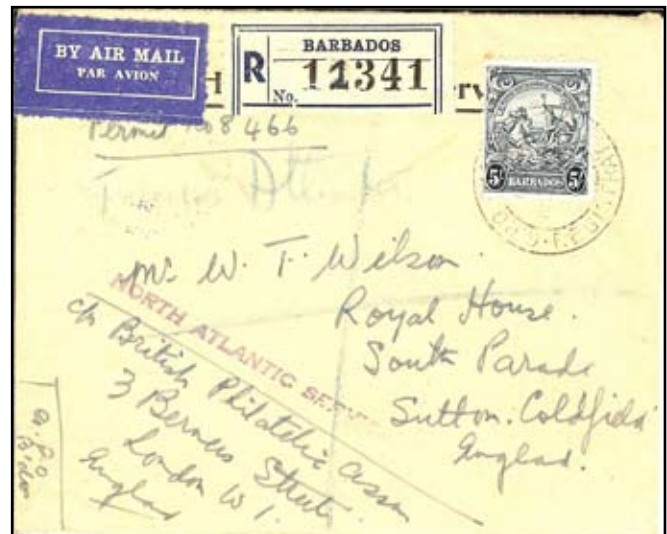 BY AIR MAIL
PAR AVION
R
BARBADOS
No. 11341
Permit No 8466
5/ BARBADOS 5/
G.P.O.
Mr. W. T. Wilson.
Royal House.
South Parade
Sutton. Coldfield
England.
NORTH ATLANTIC SERVICE
c/o British Philatelic Assn
3 Berners Street.
London W1.
England
G.P.O
B'dos